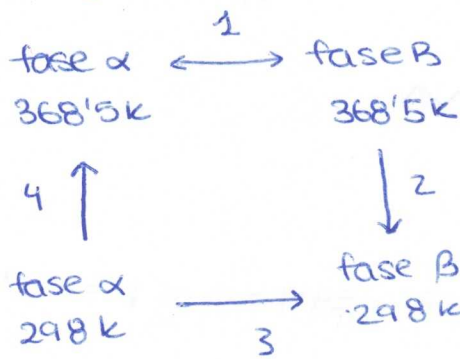 1
fase α ⟷ fase β
368'5K 368'5K
4 ↑ ↓ 2
fase α → fase β
298 K 298 K
3